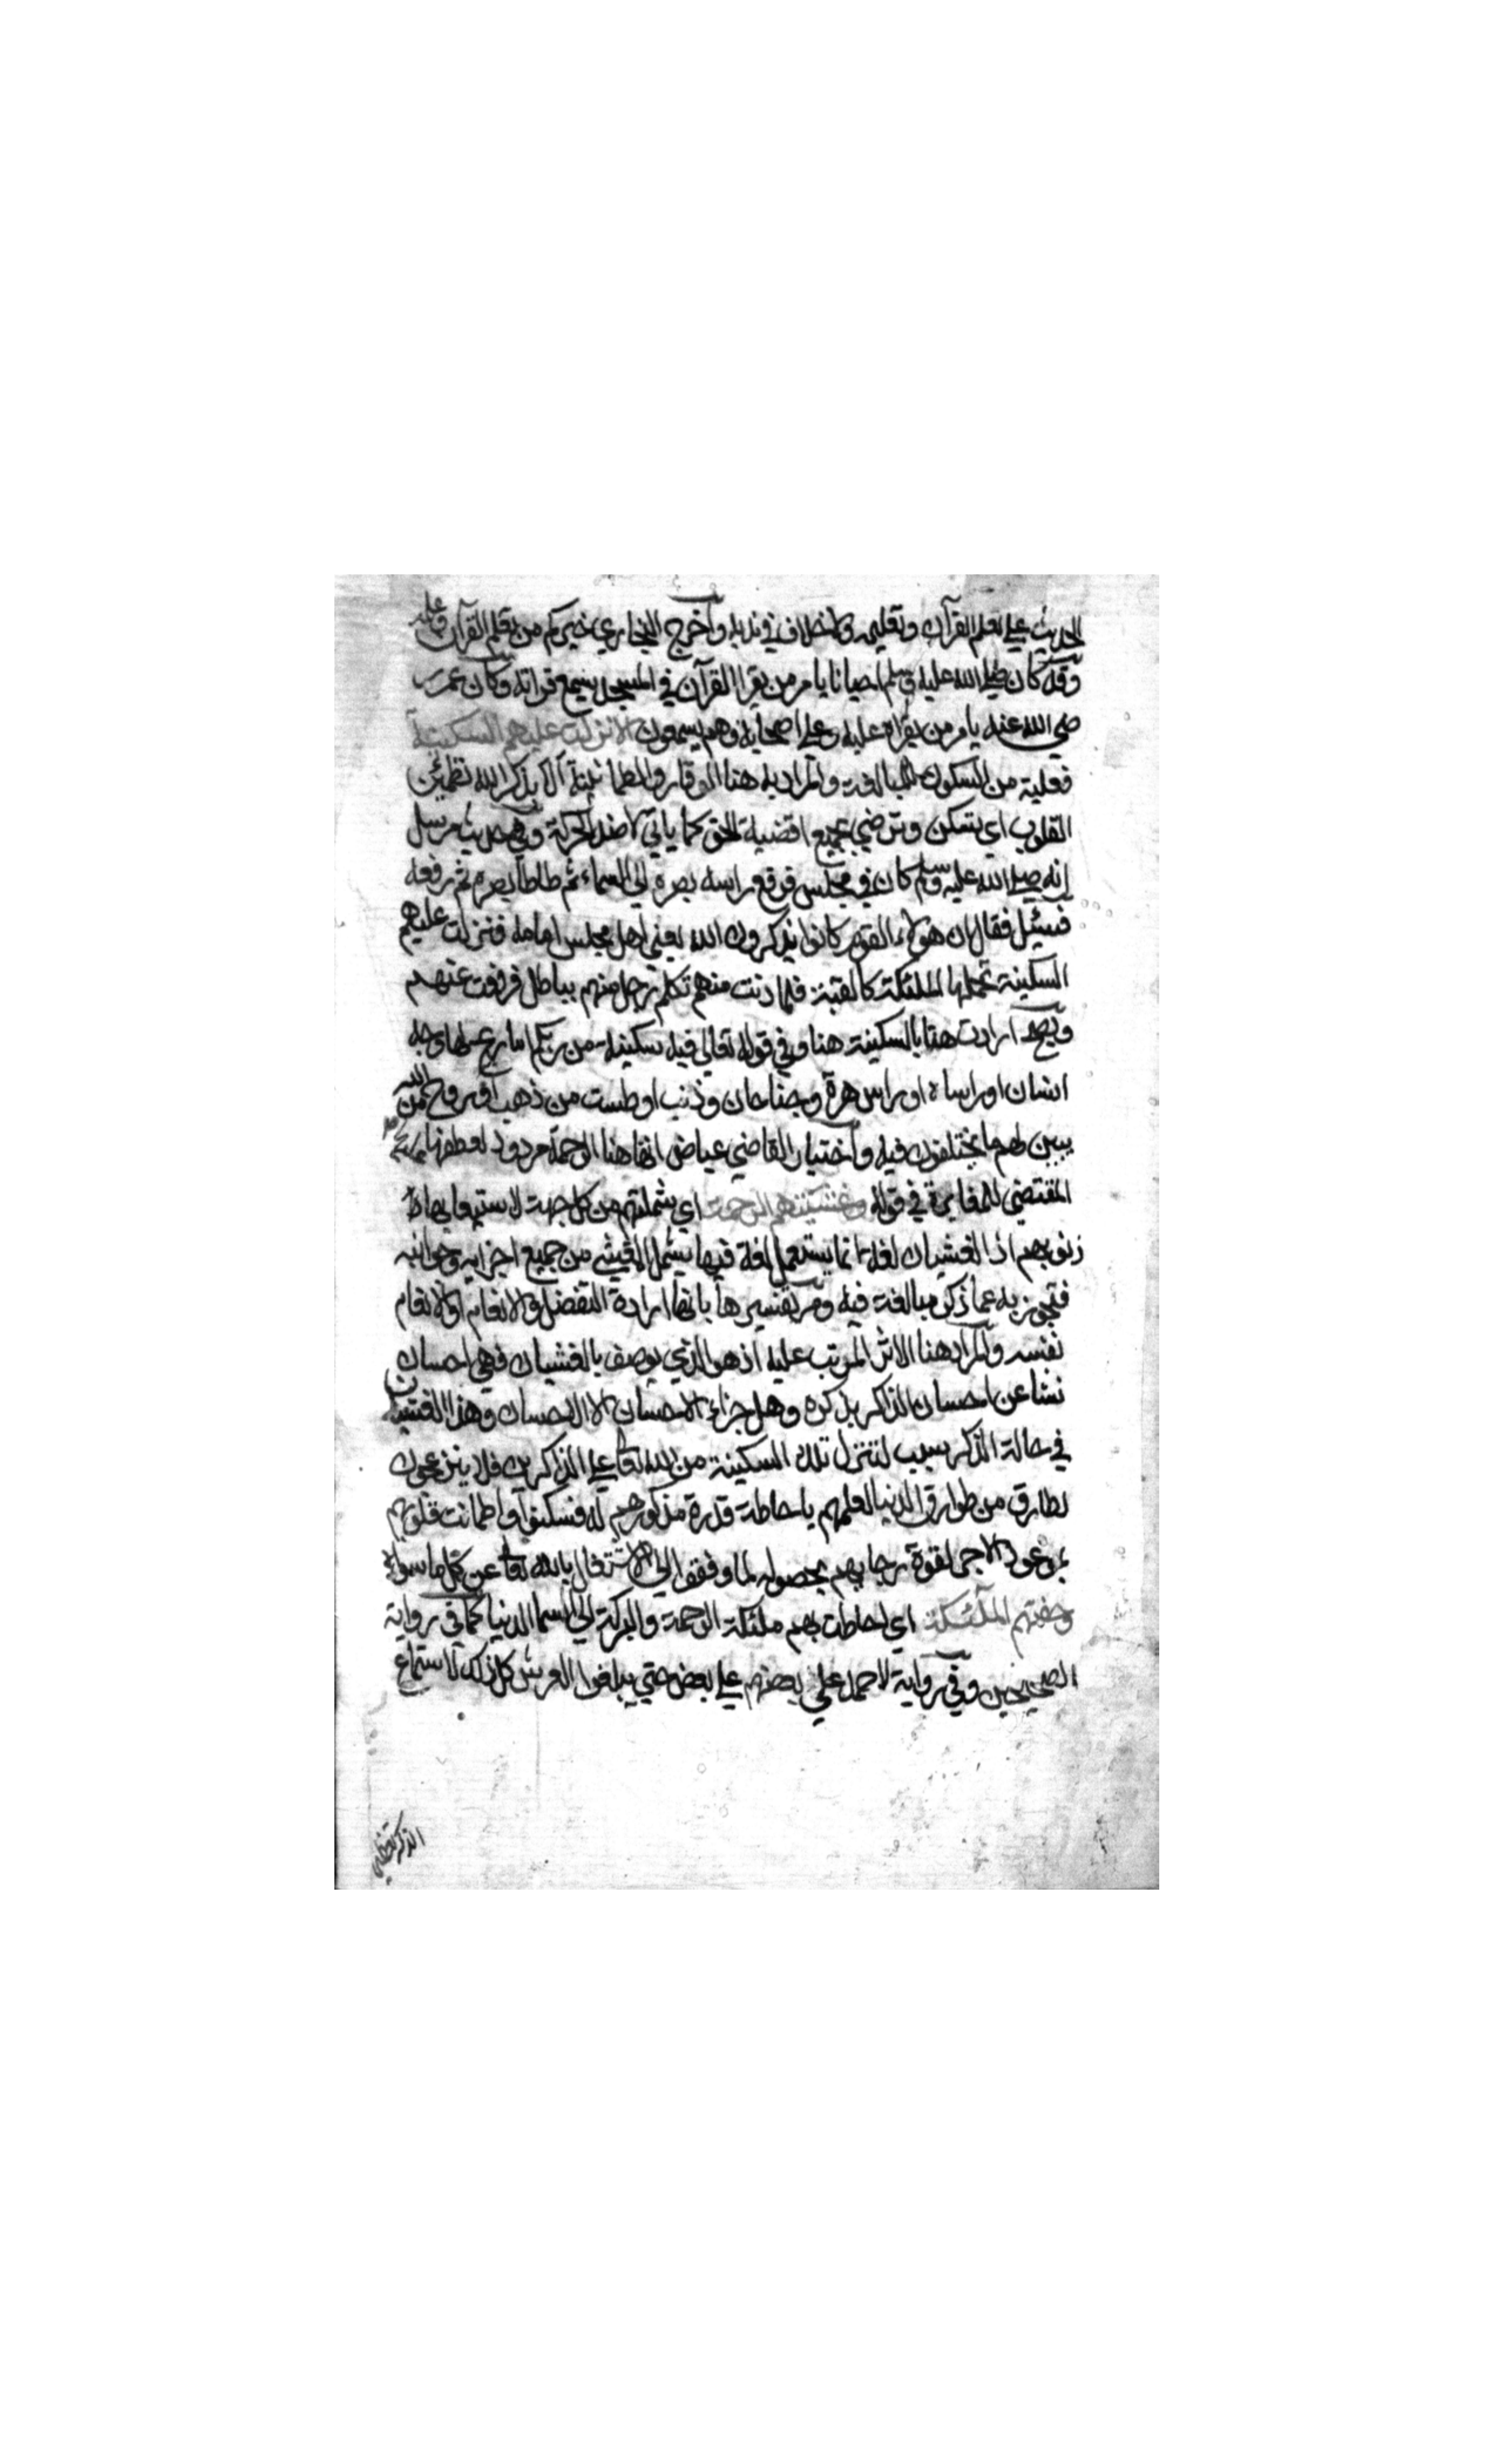 الحديث علي تعلم القرآن وتعليمه ولا خلاف في ندبه وأخرج البخاري خيركم من تعلم القرآن وعلمه
وقد كان صلي الله عليه وسلم احيانا يامر من يقرا القرآن في المسجد يسمع قراته وكان عمر ر
ضي الله عنه يامر من يقراه عليه وعلي اصحابه وهم يسمعون الا نزلت عليهم السكينة
فعلية من السكون للمبالغة والمراد به هنا الوقار والطمانينة الا بذكر الله تطمئن
القلوب اي تسكن وترضي بجميع اقضية الحق كما ياتي لا ضد الحركة وفي حديث مرسل
انه صلي الله عليه وسلم كان في مجلس فرفع راسه بصره الي السماء ثم طاطا بصره ثم رفعه
فسئل فقال ان هولاء القوم كانوا يذكرون الله يعني اهل مجلس امامه فتنزلت عليهم
السكينة تحملها الملئكة كالقبة فلما دنت منهم تكلم رجل منهم بباطل فرفعت عنهم
ويصح ارادت هتا بالسكينة هنا وفي قوله تعالي فيه سكينة من ربكم انها ريح لها وجه
انسان او راسا ه او راس هرة وجناحان وذنب او طست من ذهب او روح من الله
يبين لهم ما يختلفون فيه وأختيار القاضي عياض انها هنا الرحمة مردود لعطفها عليه
المقتضي للمغايرة في قوله وغشيتهم الرحمة اي شملتهم من كل جهت لاستيعابها
ذنوبهم اذ الغشيان لغة انما يستعمل لغة فيما يشمل المغشي من جميع اجزايه وجوانبه
فتجوز به عما ذكر مبالغة فيه ومر تفسيرها بانها ارادة التفضل والانعام او الانعام
نفسه والمراد هنا الاثر المرتب عليه اذ هو الذي يوصف بالغشيان فهي احسان
نشا عن احسان الذاكر بذكره وهل جزاء الاحسان الا الاحسان وهذا الغشيان
في حالة الذكر سبب لتنزل تلك السكينة من الله تعا علي الذاكرين فلا ينزعجون
لطارق من طوارق الدنيا لعلمهم باحاطة قدرة مذكورهم له فسكنوا واطمانت قلوبهم
بموعود الاجر لقوة رجايهم بحصوله لما وفقوا الي الاشتغال بالله تعا عن كل ما سواه
وحفتهم الملئكة اي احاطت بهم ملئكة الرحمة والبركة الي السما الدنيا كما في رواية
الصحيحين وفي رواية لاحمد علي بعضهم علي بعض حتي يبلغوا العرش كل ذلك لاستماع